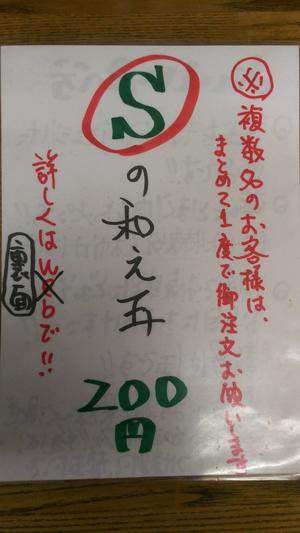 ※複数名のお客様は、
まとめて1度で御注文お願いします
Sの和え玉
200
円
詳しくはWebで!!
裏面